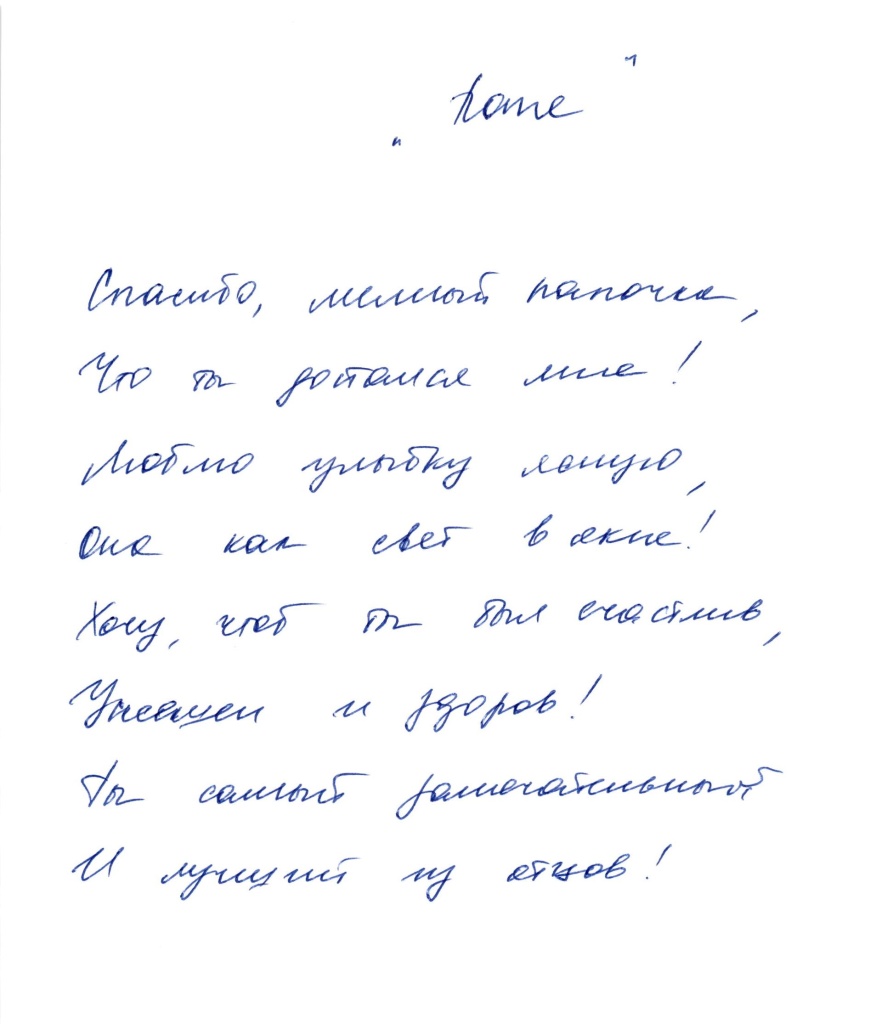 „Папе"
Спасибо, милый папочка,
Что ты достался мне!
Люблю улыбку ясную,
Она как свет в окне!
Хочу, чтоб ты был счастлив,
Успешен и здоров!
Ты самый замечательный
И лучший из отцов!